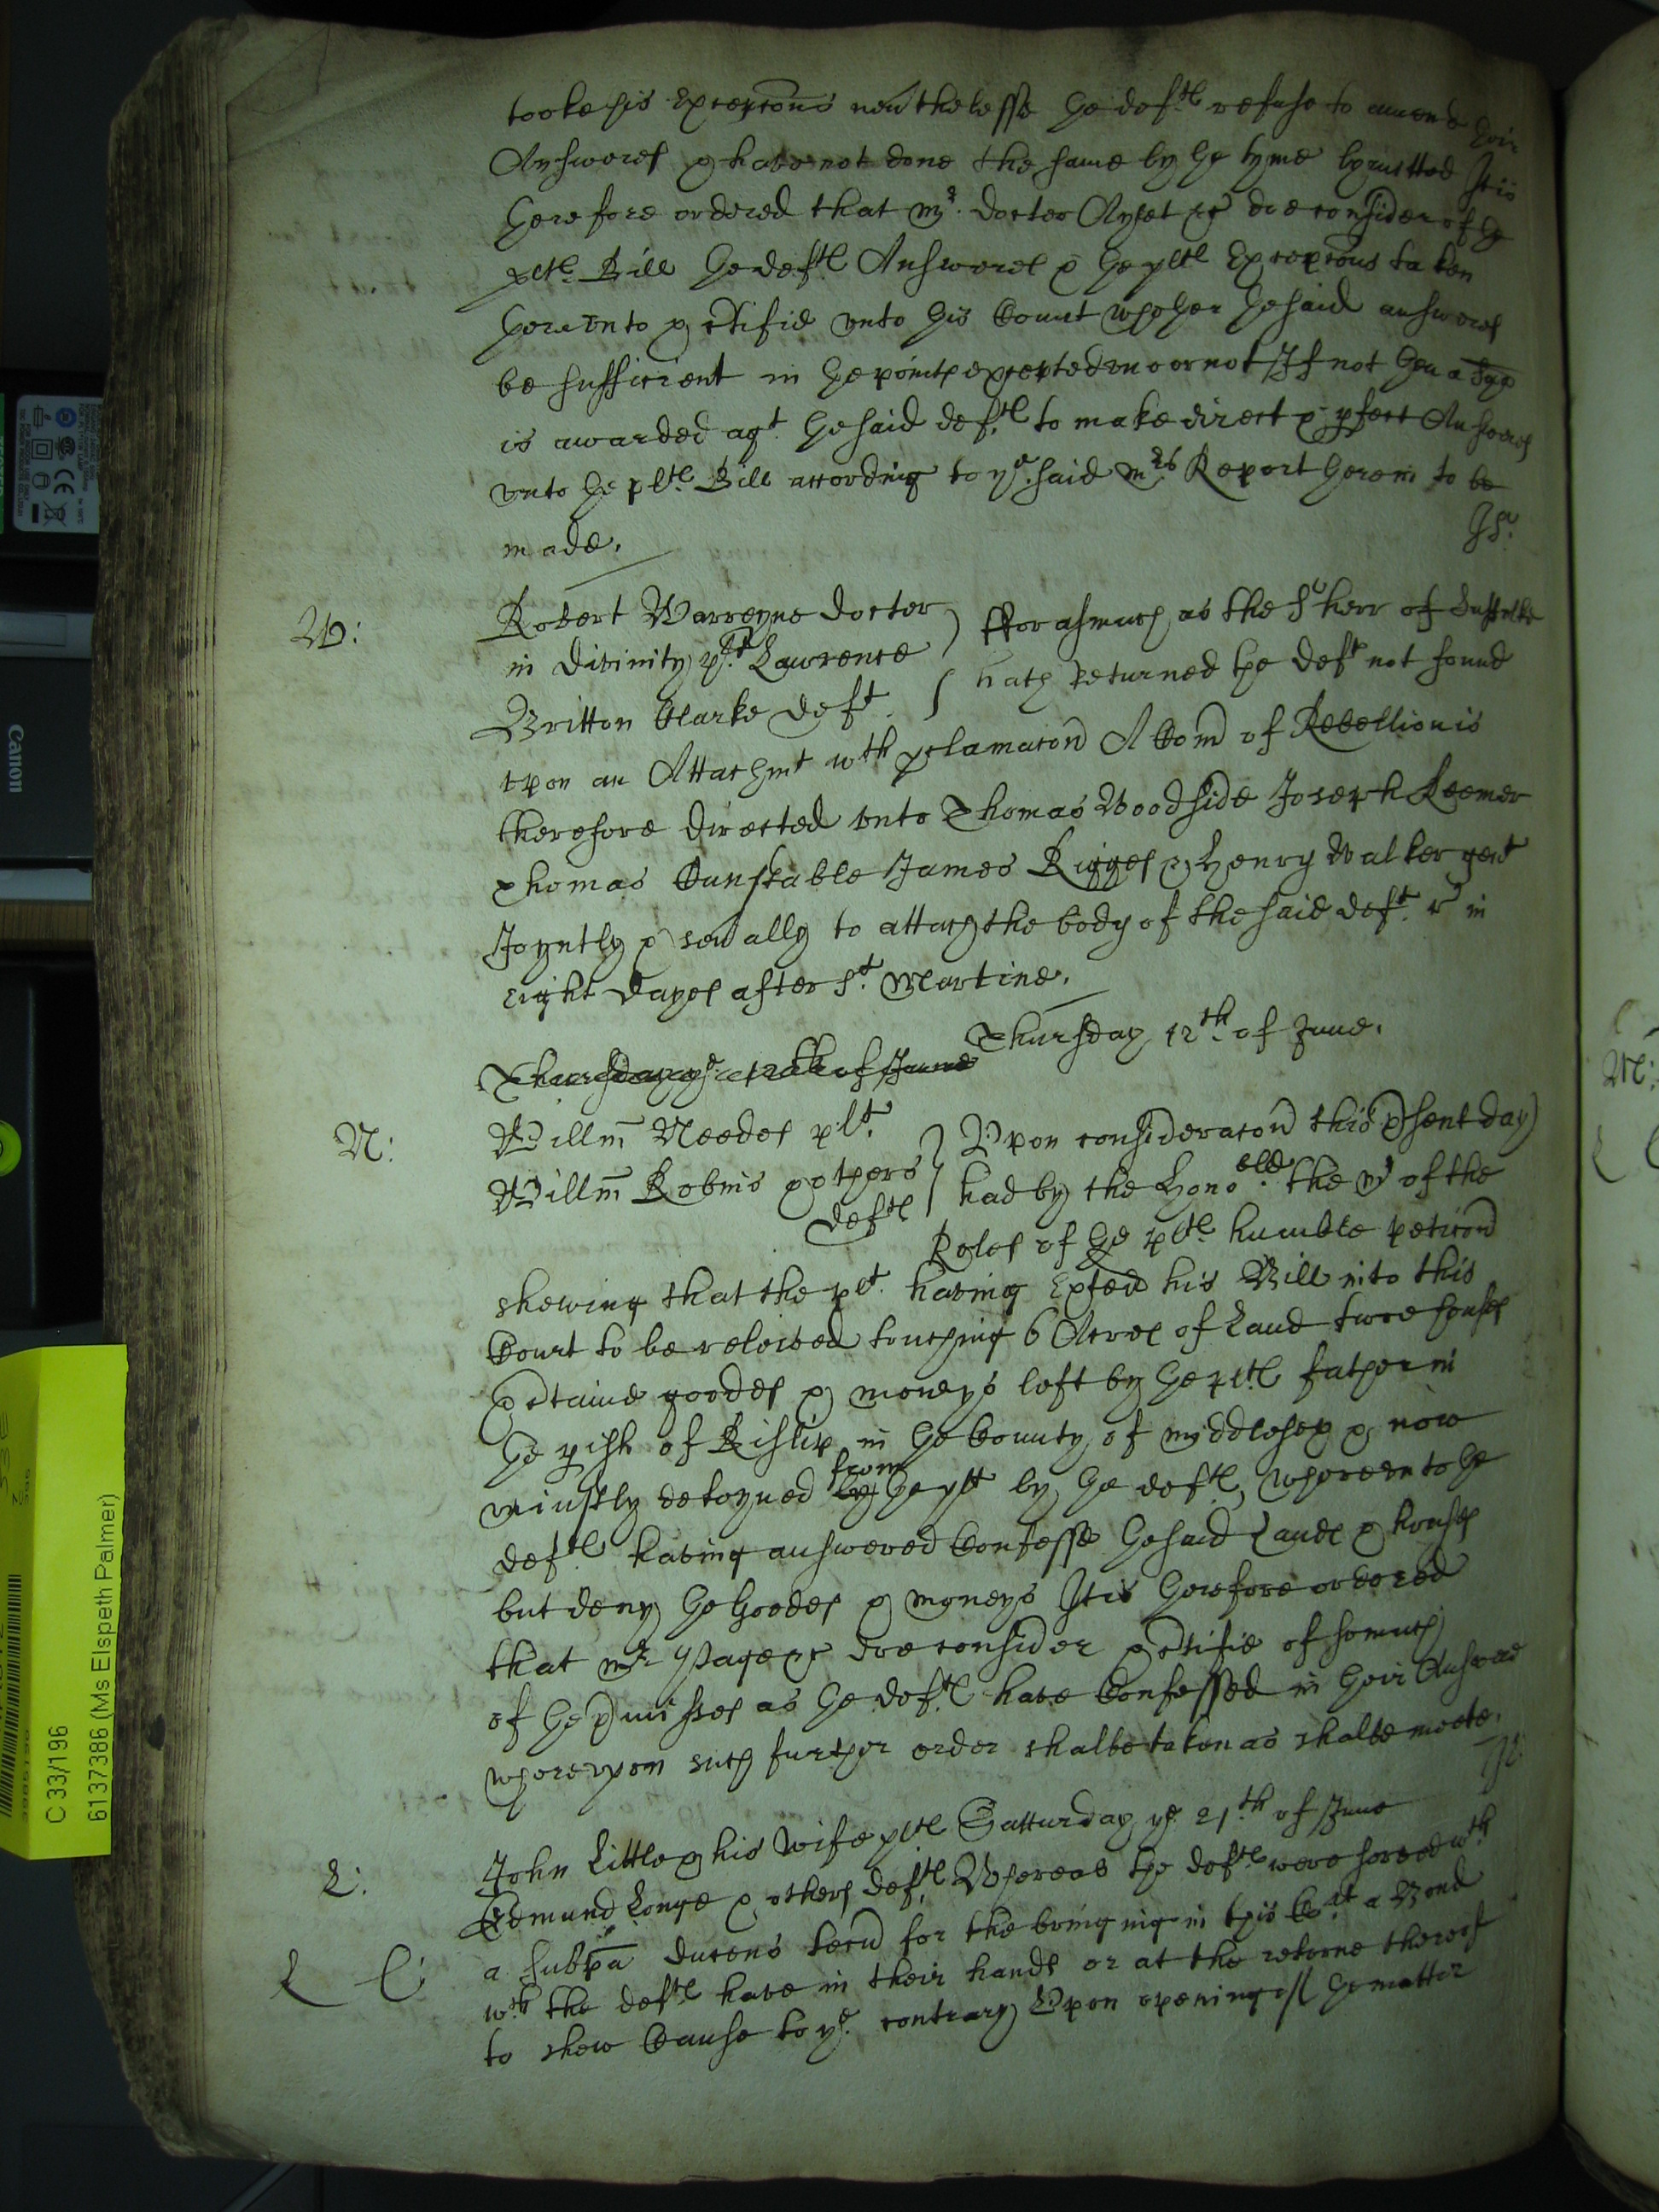 tooke his Excepcons neuthelesse the deftes refuse to amend their
Answeres & have not done the same by the tyme lymitted It is
therefore ordered that mr. doctor Amet &c doe consider of the
pltes Bill the deftes Answeres & the pltes Excepcons taken
therevnto & certifie vnto this Court whether the said answeres
be sufficient in the pointes excepted vnto or not If not then a Spa
is awarded agt. the said deftes to make direct & pfect Answeres
vnto the pltes Bill according to ye. said mrs Report therein to be
made.
W:
Robert Warreyne doctor
in divinity plt Lawrence
Britton Clarke deft.
fforasmuch as the Sherr of Suffolke
hath Returned the deft not found
vpon an Attachmt wth pclamacon A Com of Rebellion is
therefore directed vnto Thomas Woodside Joseph Keemer
Thomas Cunstable James Rigges & Henry Walker gent
Joyntly & seually to attach the body of the said deft. r in
eight dayes after St. Martine.
Thursday ye 12th of June
Thursday 12th of June.
N:
Willm Needes plt.
Willm Robins & others
deftes
Vpon consideracon this psent day
had by the Honoble. the mr of the
Roles of the pltes humble peticon
shewing that the plt. having Exhited his Bill into this
Court to be releived touching 6 Acres of Land twoe houses
Certaine goodes & moneys left by the pltes father in
the pish of Rislip in the County of middlesex & now
vniustly detayned by from the plt by the deftes, wherevnto the
deftes having answered Confesse the said Landes & houses
but deny the Goodes & moneys It is therefore ordered
that mr Page &c doe consider & certifie of somuch
of the pmisses as the deftes have Confessed in their Answere
wherevpon such further order shalbe taken as shalbe meete.
L:
John Little & his wife pltes Satturday ye. 21th of June
Edmund Longe & others deftes. Whereas the deftes were served wth
a subpa ducens tecu for the bringing in this Cort a Bond
wch the deftes have in their handes or at the retorne thereof
to shew Cause to ye. contrary Vpon opening of the matter
C 33/196
6137386 (Ms Elspeth Palmer)
Canon